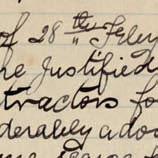 of 28th Febru
he justified
tractors fo
derably ado